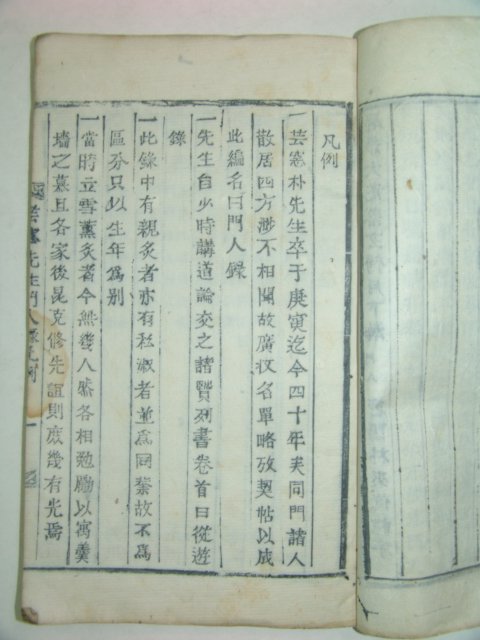 凡例
一芸窓朴先生卒于庚寅迄今四十年矣同門諸人
散居四方渺不相聞故廣收名單略攷契帖以成
此編名曰門人錄
一先生自少時講道論交之諸賢列書卷首曰從遊
錄
一此錄中有親炙者亦有私淑者並爲同彙故不爲
區分只以生年爲別
一當時立雪薰炙者今無幾人然各相勉勵以寓羹
墻之慕且各家後昆克修先誼則庶幾有光焉
芸窓先生門人錄凡例
一